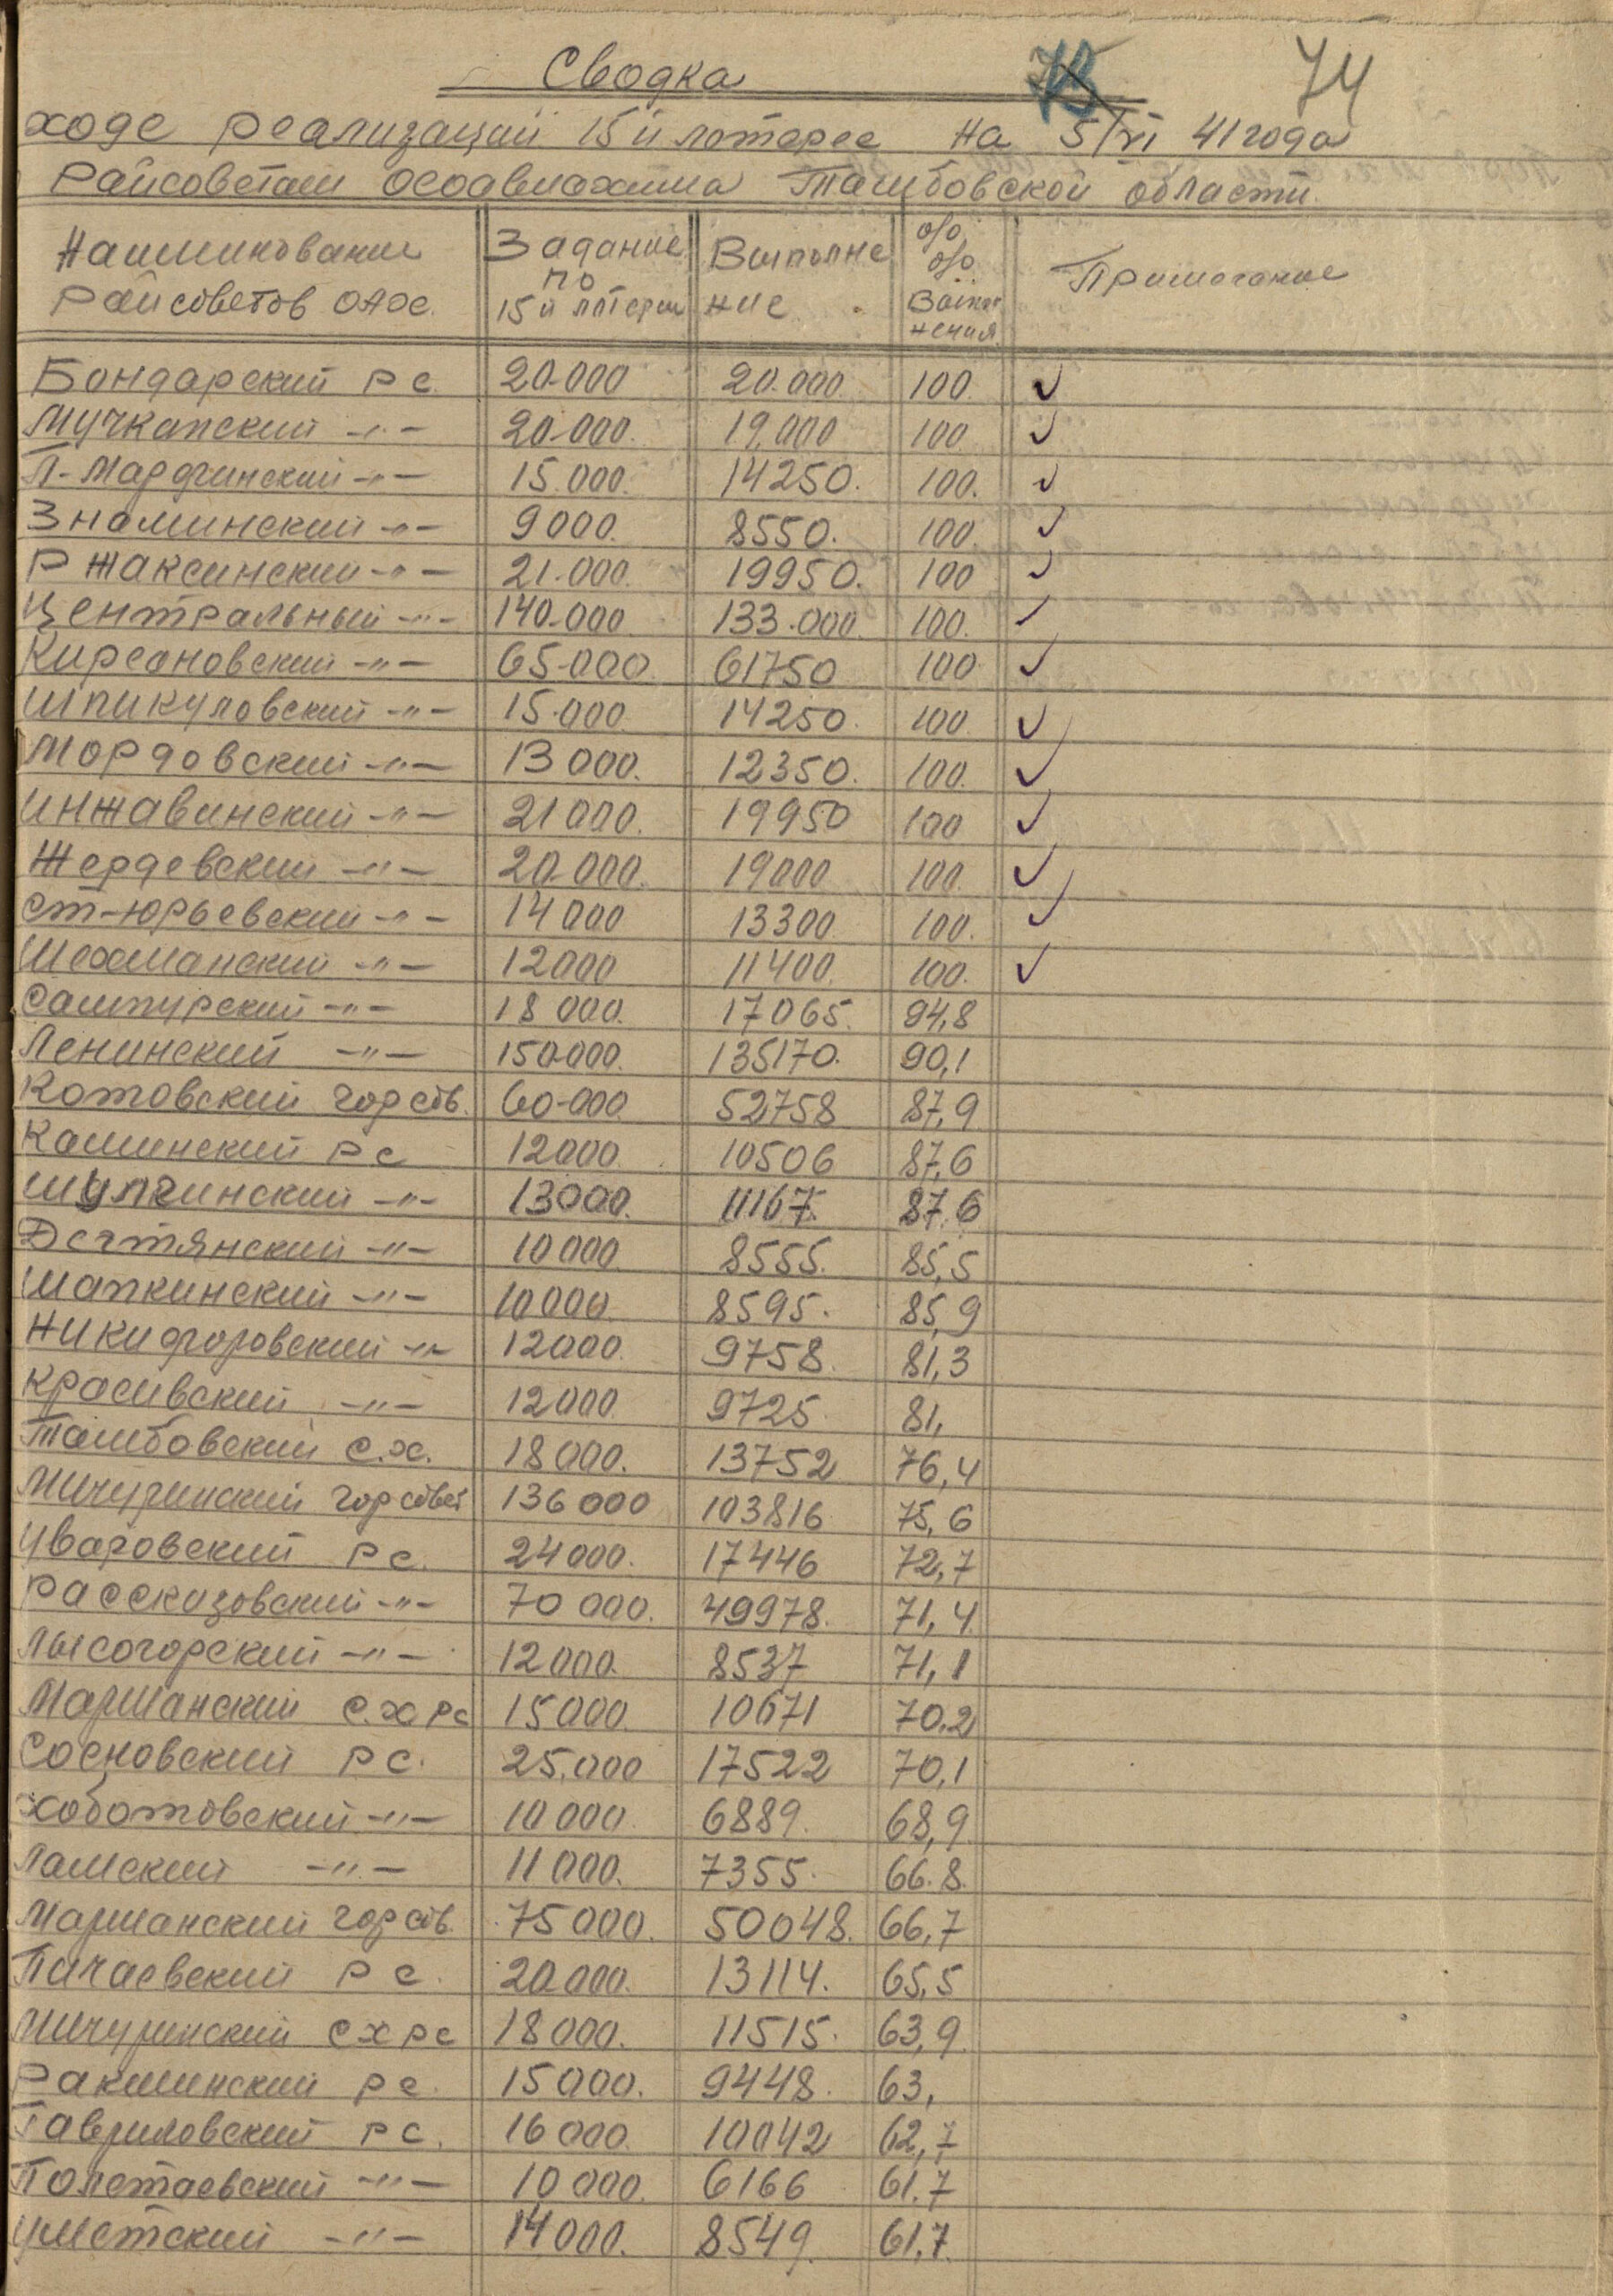 74
Сводка
ходе реализаций 15й лотерее на 5/VI 41 года
Райсоветам Осоавиахима Тамбовской области.
Наиминование Райсоветов ОАХ.
Задание по 15й лотереи
Выполнение
о/о о/о
Примечание
Бондарский РС. 20.000 20.000 100. ✓
Мучкапский -"- 20.000. 19.000 100 ✓
П-Мардчинский -"- 15.000. 14250. 100. ✓
Знаминский -"- 9000. 8550. 100. ✓
Ржаксинский -"- 21.000. 19950. 100 ✓
Центральный -"- 140.000 133.000. 100. ✓
Кирсановский -"- 65-000 61750 100 ✓
Шпикуловский -"- 15.000 14250. 100 ✓
Мордовский -"- 13000. 12350. 100. ✓
Инжавинский -"- 21000. 19950 100 ✓
Жердевский -"- 20.000. 19000 100. ✓
Ст-Юрьевский -"- 14000 13300. 100. ✓
Шехманский -"- 12000 11400. 100. ✓
Сампурский -"- 18000. 17065. 94,8
Ленинский -"- 150.000. 135170. 90,1
Котовский горсов. 60-000 52758 87,9
Каминский РС 12000. 10506 87,6
Шульгинский -"- 13000. 11167. 87.6
Дегтянский -"- 10000. 8555. 85,5
Шапкинский -"- 10000. 8595. 85,9
Никифоровский -"- 12000. 9758. 81,3
Красивский -"- 12000 9725. 81,
Тамбовский с.х. 18000. 13752 76,4
Мичуринский горсовет 136000 103816 75,6
Уваровский РС. 24000. 17446 72,7
Рассказовский -"- 70000. 49978. 71,4
Лысогорский -"- 12000. 8537 71,1
Маршанский с.х РС 15000. 10671 70.2
Сосновский РС. 25.000 17522 70,1
Хоботовский -"- 10000. 6889. 68,9
Ламский -"- 11000. 7355. 66.8.
Маршанский горсов. 75000. 50048. 66,7
Пичаевский РС. 20000. 13114. 65,5
Мичуринский СХ РС 18000. 11515. 63,9
Ракшинский РС. 15000. 9448. 63,
Гавриловский РС. 16000. 10042 62,7
Полетаевский -"- 10000. 6166 61.7
Уметский -"- 14000. 8549. 61.7.